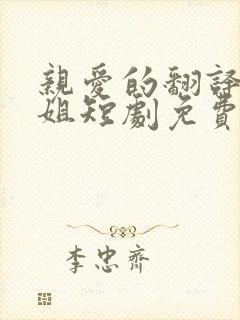 親愛的翻譯
姐短劇免費
李忠齊